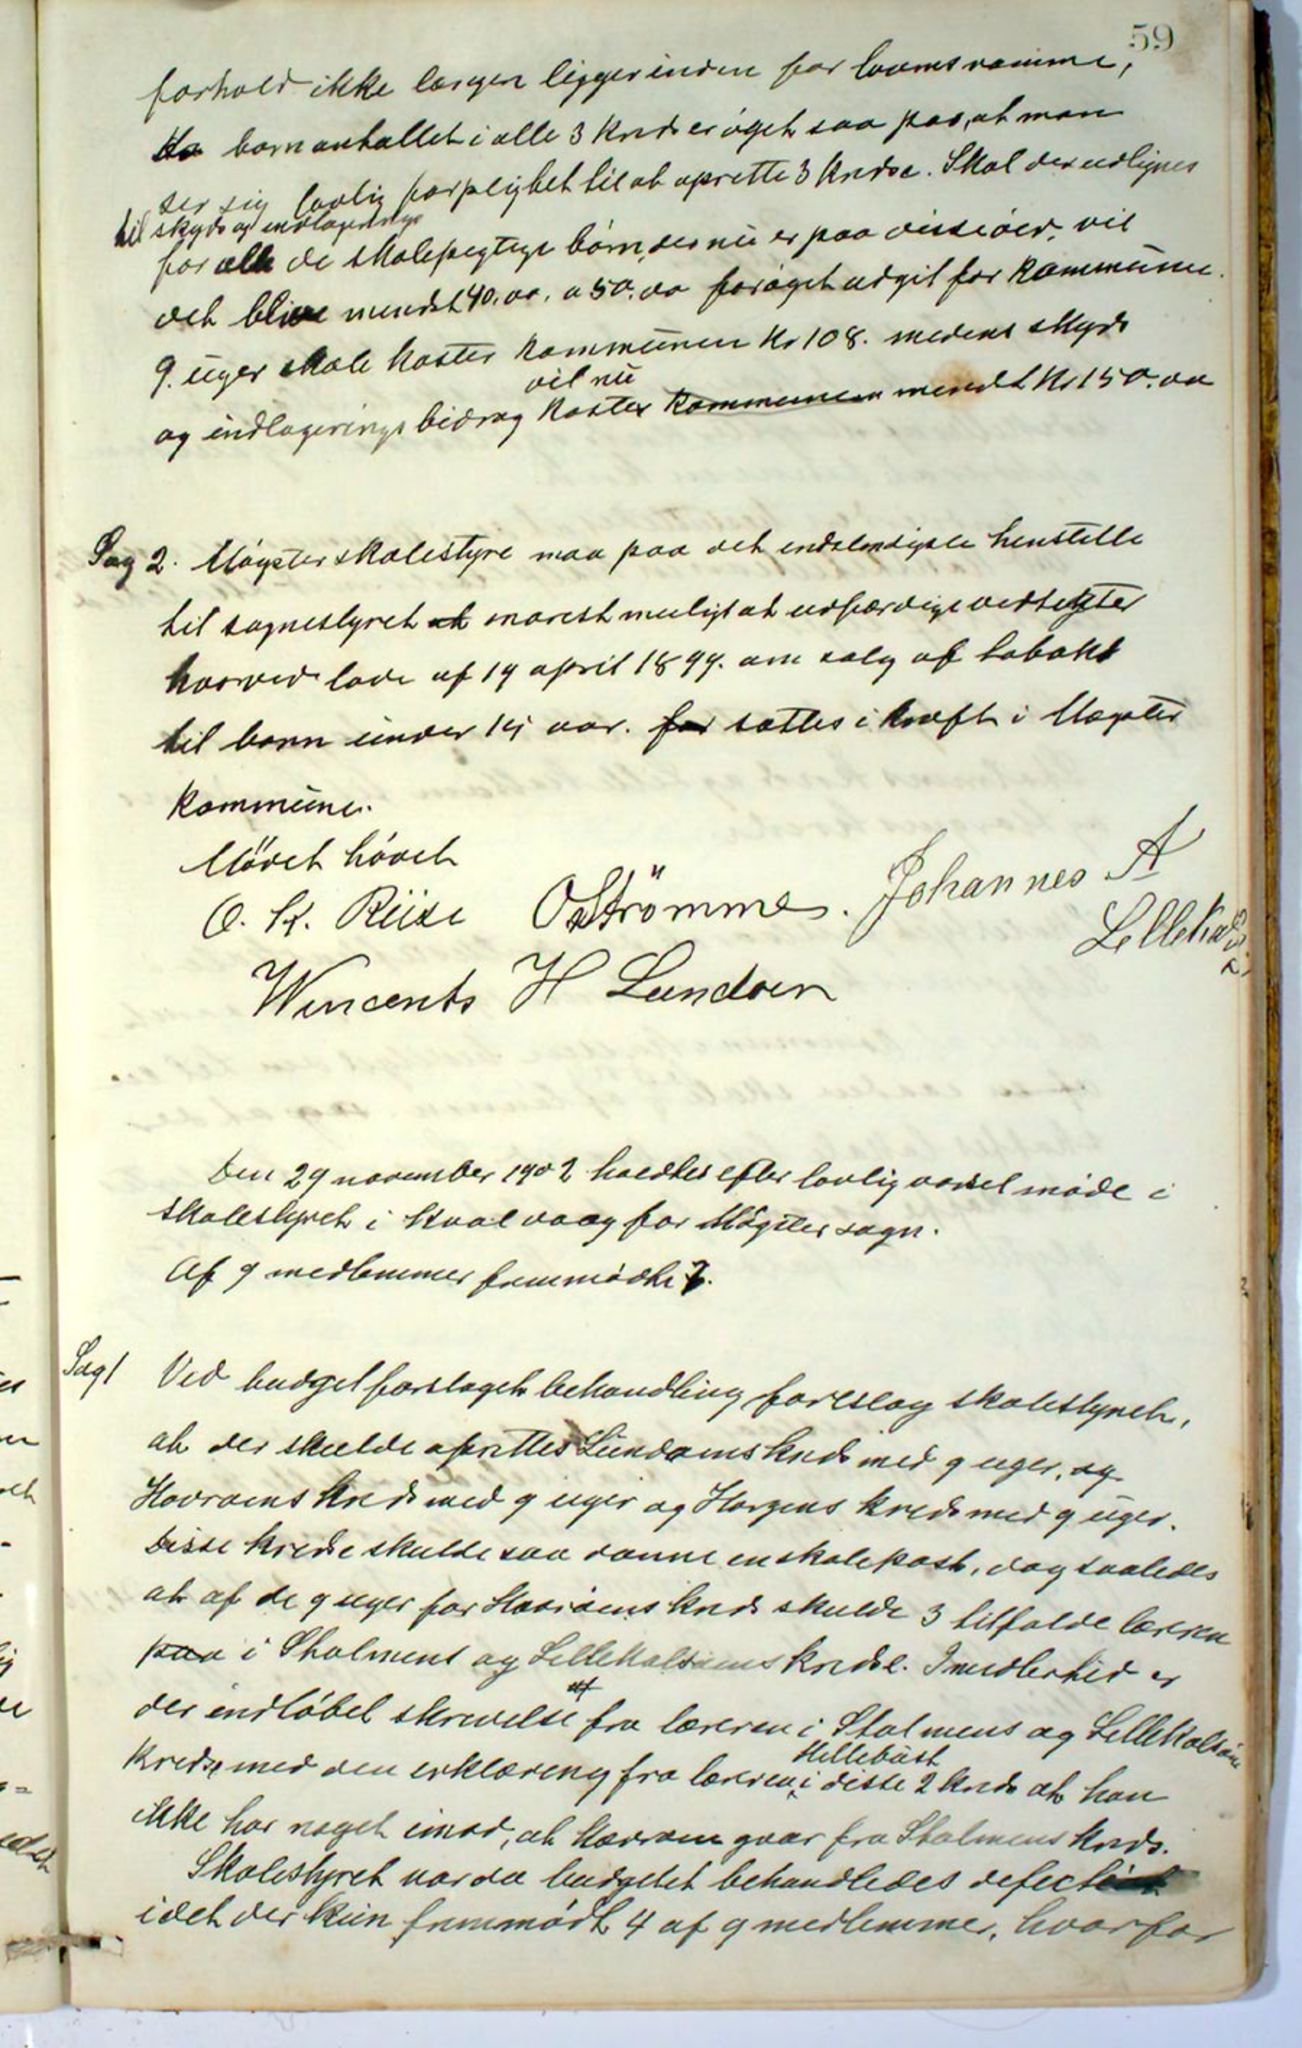 59
forhold ikke længer ligger inden for lovens ramme,
da barnantallet i alle 3 kreds er øget saa paa, at man
ser sig lovlig forpligtet til at oprette 3 kredse. Skal der udlignes
til skyds og indlogerings
for alle de skolepligtige børn, der nu er paa disse øer, vil
det blive mindst 40.00 a 50.00 forøget udgift for kommunen.
9. uger skole koster kommunen Kr 108. medens skyds
vil nu
og indlogeringsbidrag koster kommunen mindst Kr 150.00
Sag 2. Møgster skolestyre maa paa det indstændigste henstille
til sognestyret at snarest muligt at udfærdige vedtegter
hvorved lov af 14 april 1899. om salg af tobakk
til barn under 15 aar. for sættes i kraft i Møgster
kommune.
Mødet hævet
O. K. Riise O Strömme. Johannes A
Lillekals
Wincents H Lundøen
Den 29 november 1902 holdtes efter lovlig varsel møde i
skolestyret i Kvalvaag for Møgster sogn.
Af 9 medlemmer fremmødte 7.
Sag 1 Ved budgetforslagets behandling foreslog skolestyret,
at der skulde oprettes Lundøens kreds med 9 uger, og
Hovøens kreds med 9 uger og Horgens kreds med 9 uger.
Disse kredse skulde saa danne en skolepost, dog saaledes
at af de 9 uger for Hovøens kreds skulde 3 tilfalde læreren
paa i Stolmens og Lillekalsøens kredse. Imidlertid er
der indløbet skrivelse af fra læreren i Stolmens og Lillekalsøens
Hillebust
kredse med den erklæring fra læreren i disse 2 kreds at han
ikke har noget imod, at Hovøen gaar fra Stolmens kreds.
Skolestyret var da budgettet behandledes defect
idet der kun fremmødte 4 af 9 medlemmer, hvorfor